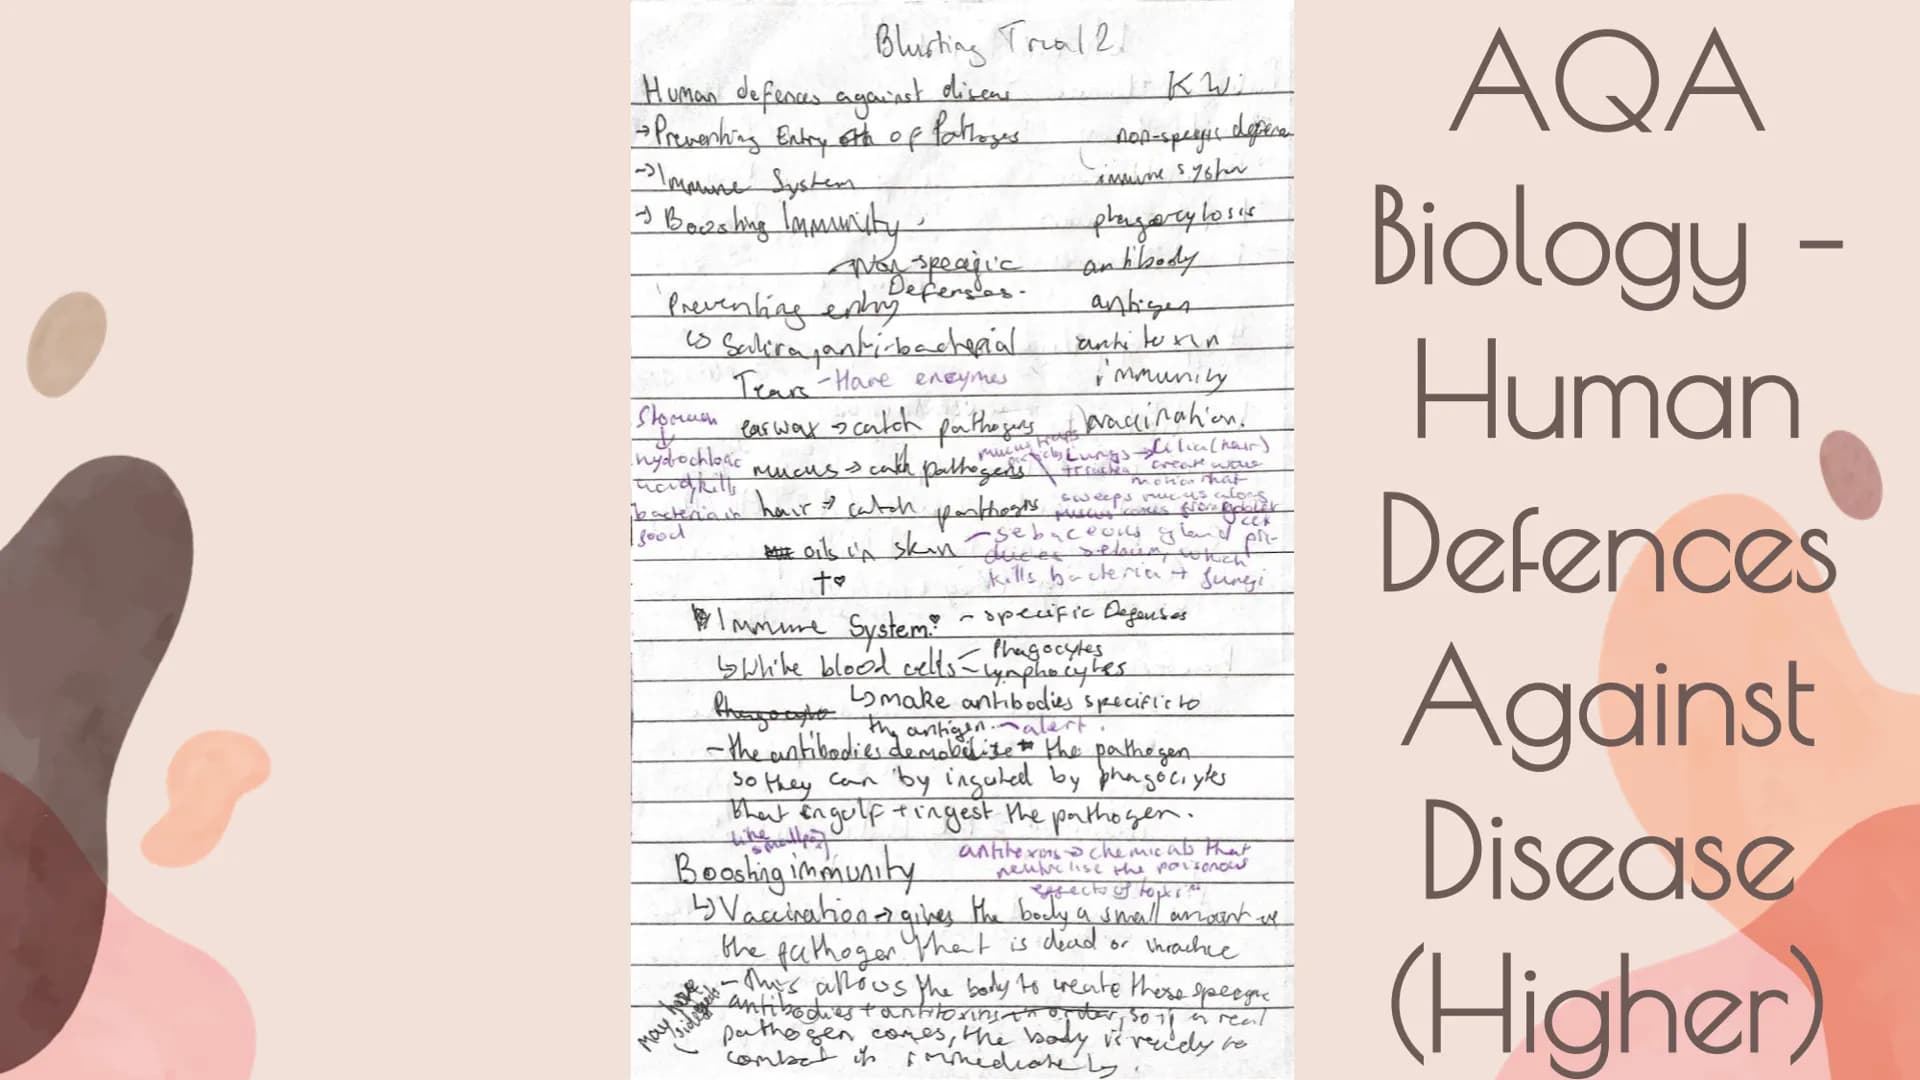 Blurting Trial 2.
Human defences against diseas
KW:
→Preventing Entry of Pathoges
non-specific defence
→Immune System
immune system
→ Boosting Immunity
phagocytosis
Non-specific
Defenses.
antibody
Preventing entry
antigen
↳ Saliva, anti-bacterial
antitoxin
Tears - Have enzymes
immunity
earwax → catch pathogens
vaccination.
Stomach
↓
hydrochloric
acid kills
bacteria in
food
mucus → catch pathogens
mucus traps
Lungs → Cilia (hair)
trachea create wave
motion that
sweeps mucus along
mucus comes from goblet
cell
hair → catch panthogns
oils in skin
- sebaceous gland pr-
duces sebum, which
kills bacteria + fungi
Immune System: - specific Defenses
↳White blood cells - Phagocytes
- lymphocytes
Phagocyto
↳make antibodies specific to
the antigen. - alert.
- the antibodies demobilize the pathogen
so they can by ingested by phagocytes
that engulf + ingest the pathogen.
like
smallpox
Boosting immunity
antitoxins → chemicals that
neutralise the poisonous
effects of toxins
↳ Vaccination → gives the body a small amount of
the pathogen that is dead or inactive
- This allows the body to create these specific
antibodies + antitoxins in order, so if a real
pathogen comes, the body is ready to
combat it immediately.
may have
side effects
AQA
Biology -
Human
Defences
Against
Disease
(Higher)